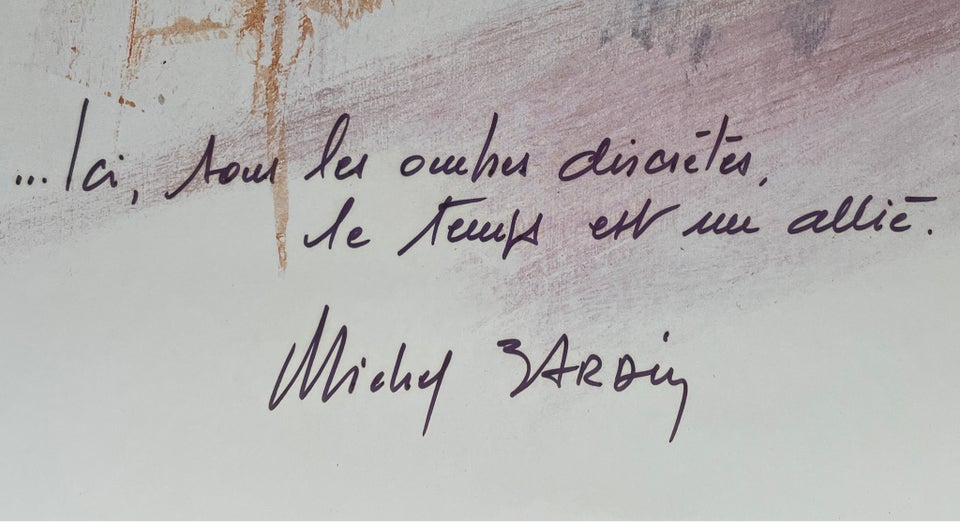 ...Ici, sous les ombres discrètes,
le temps est un allié.
Michel